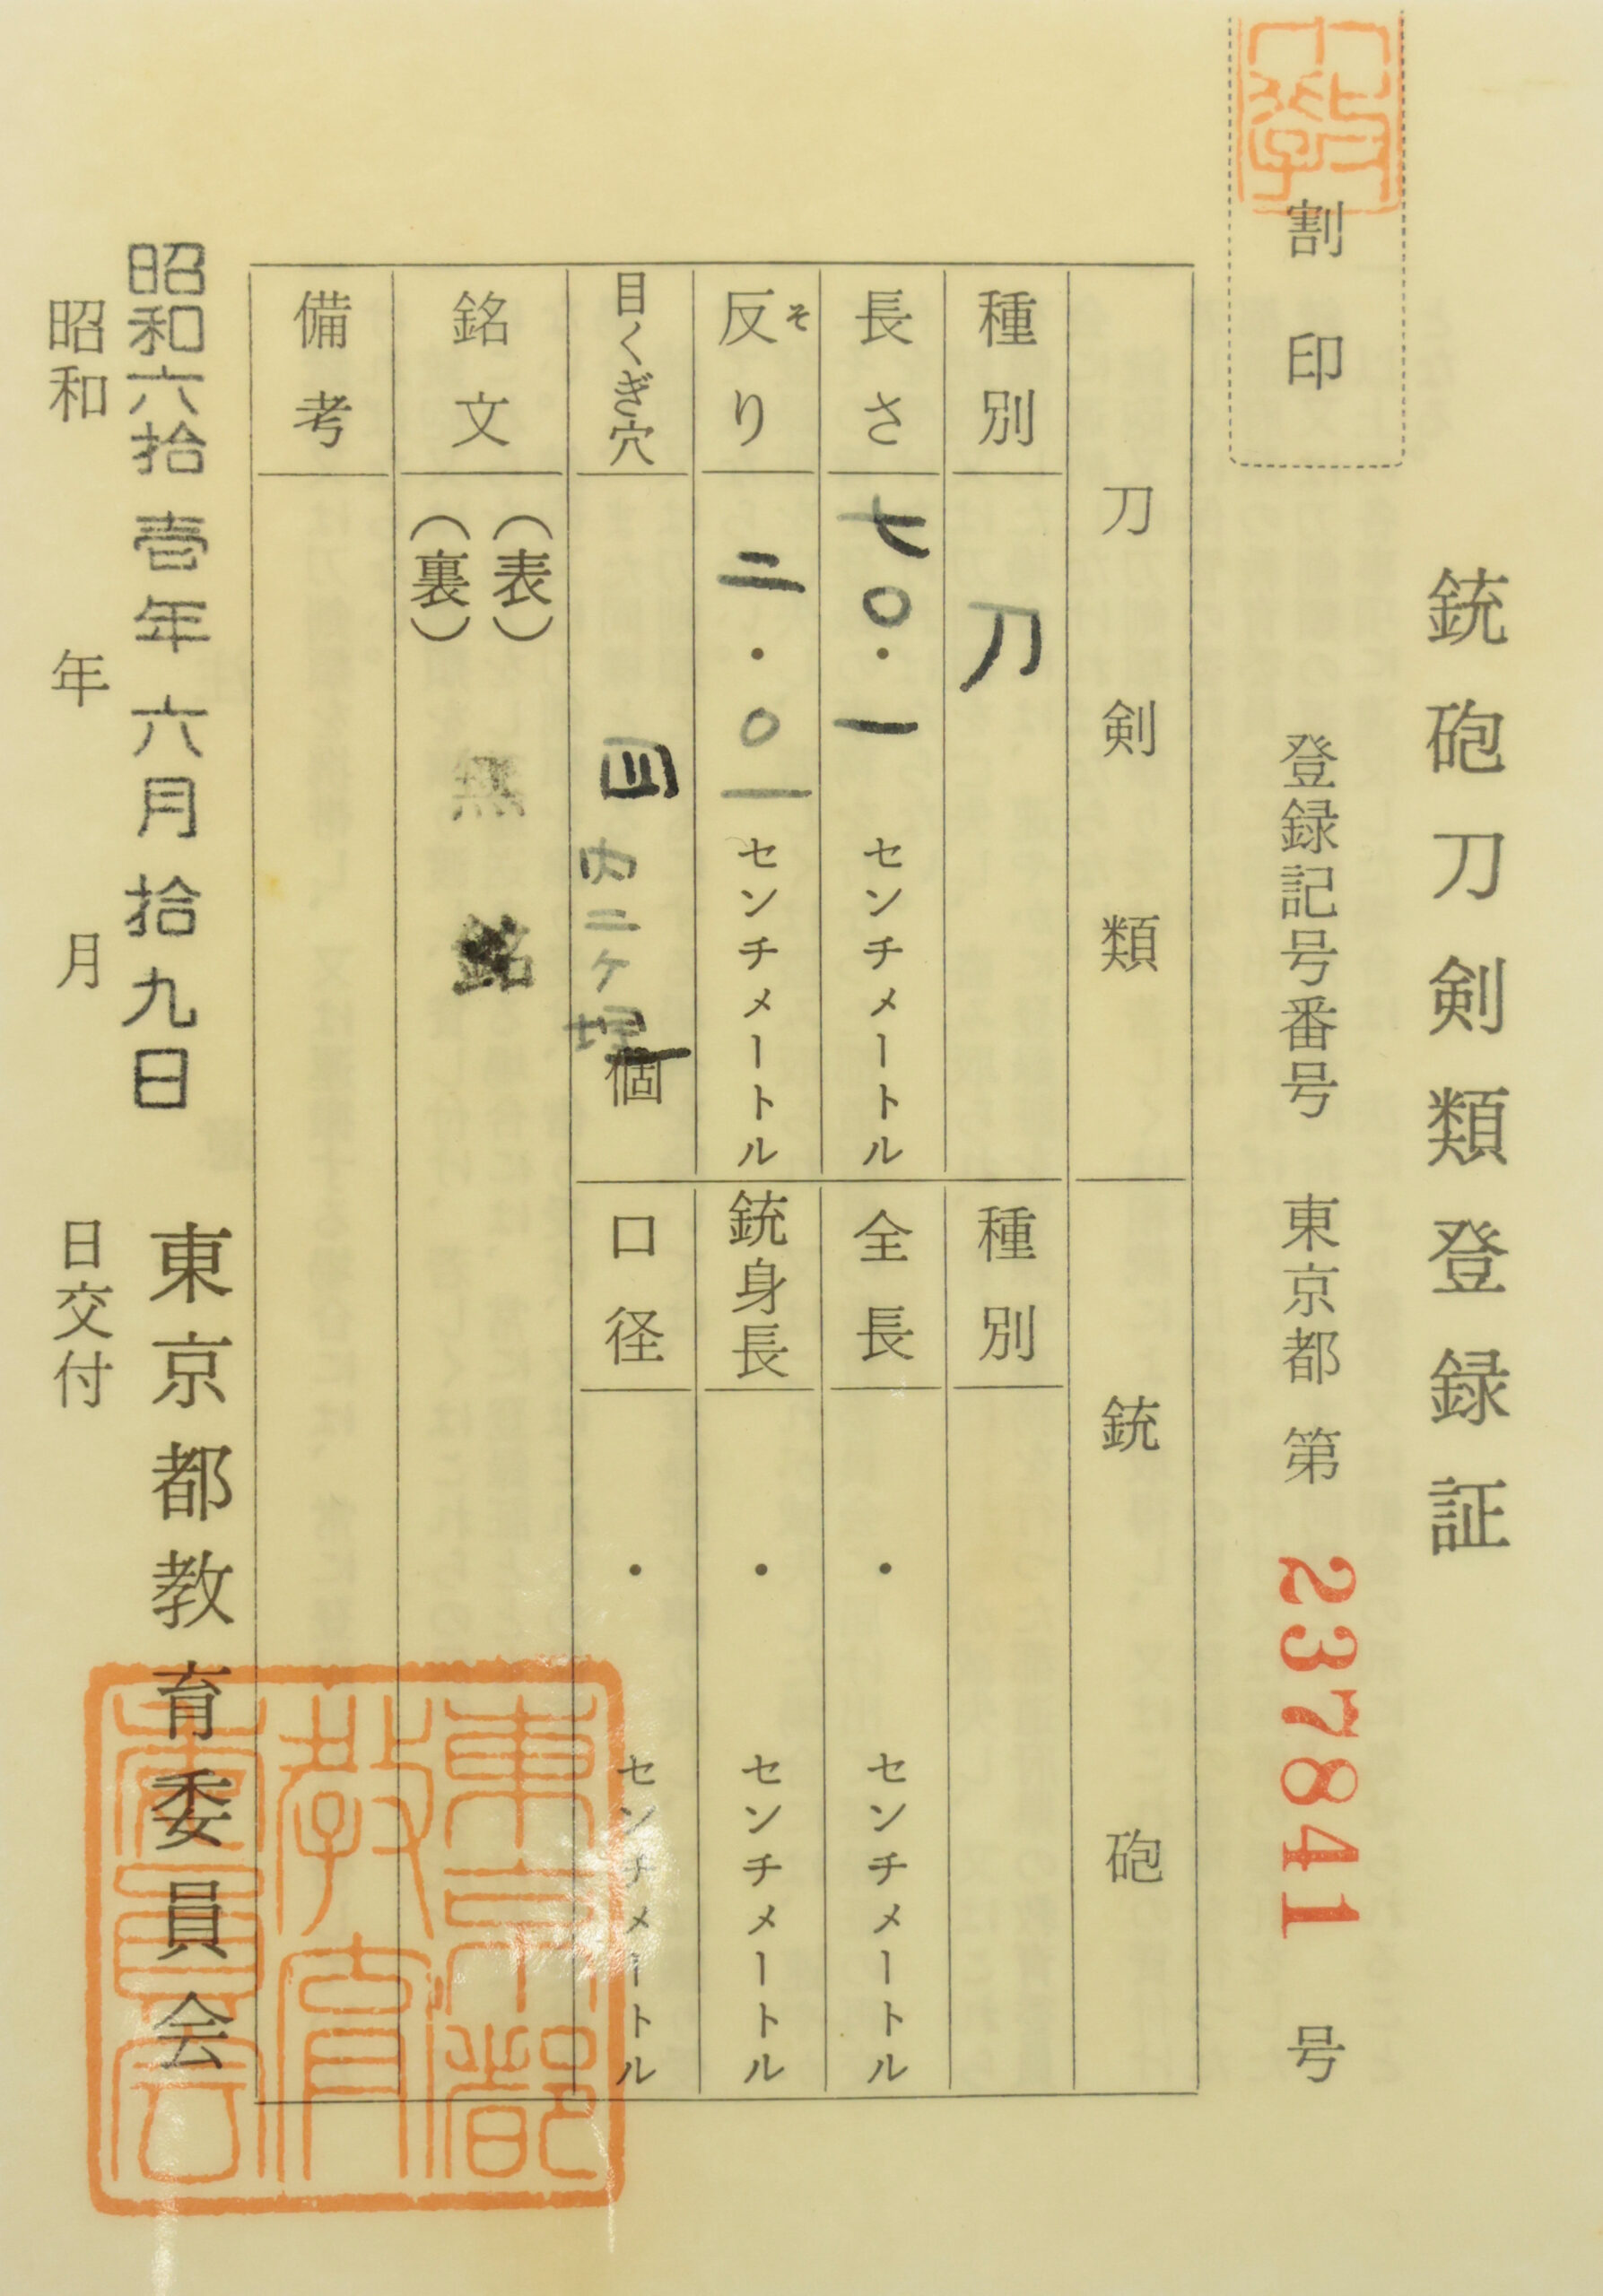 銃砲刀剣類登録証
割印
登録記号番号 東京都 第 237841 号
刀剣類
銃砲
種別 刀
長さ 七〇・一 センチメートル
反り そ 二・〇一 センチメートル
目くぎ穴 四 内二ヶ埋 個
種別
全長 ・ センチメートル
銃身長 ・ センチメートル
口径 ・ センチメートル
銘文 (表) 無銘
(裏)
備考
昭和六拾壱年六月拾九日
東京都教育委員会
昭和 年 月 日交付
東京都教育委員会